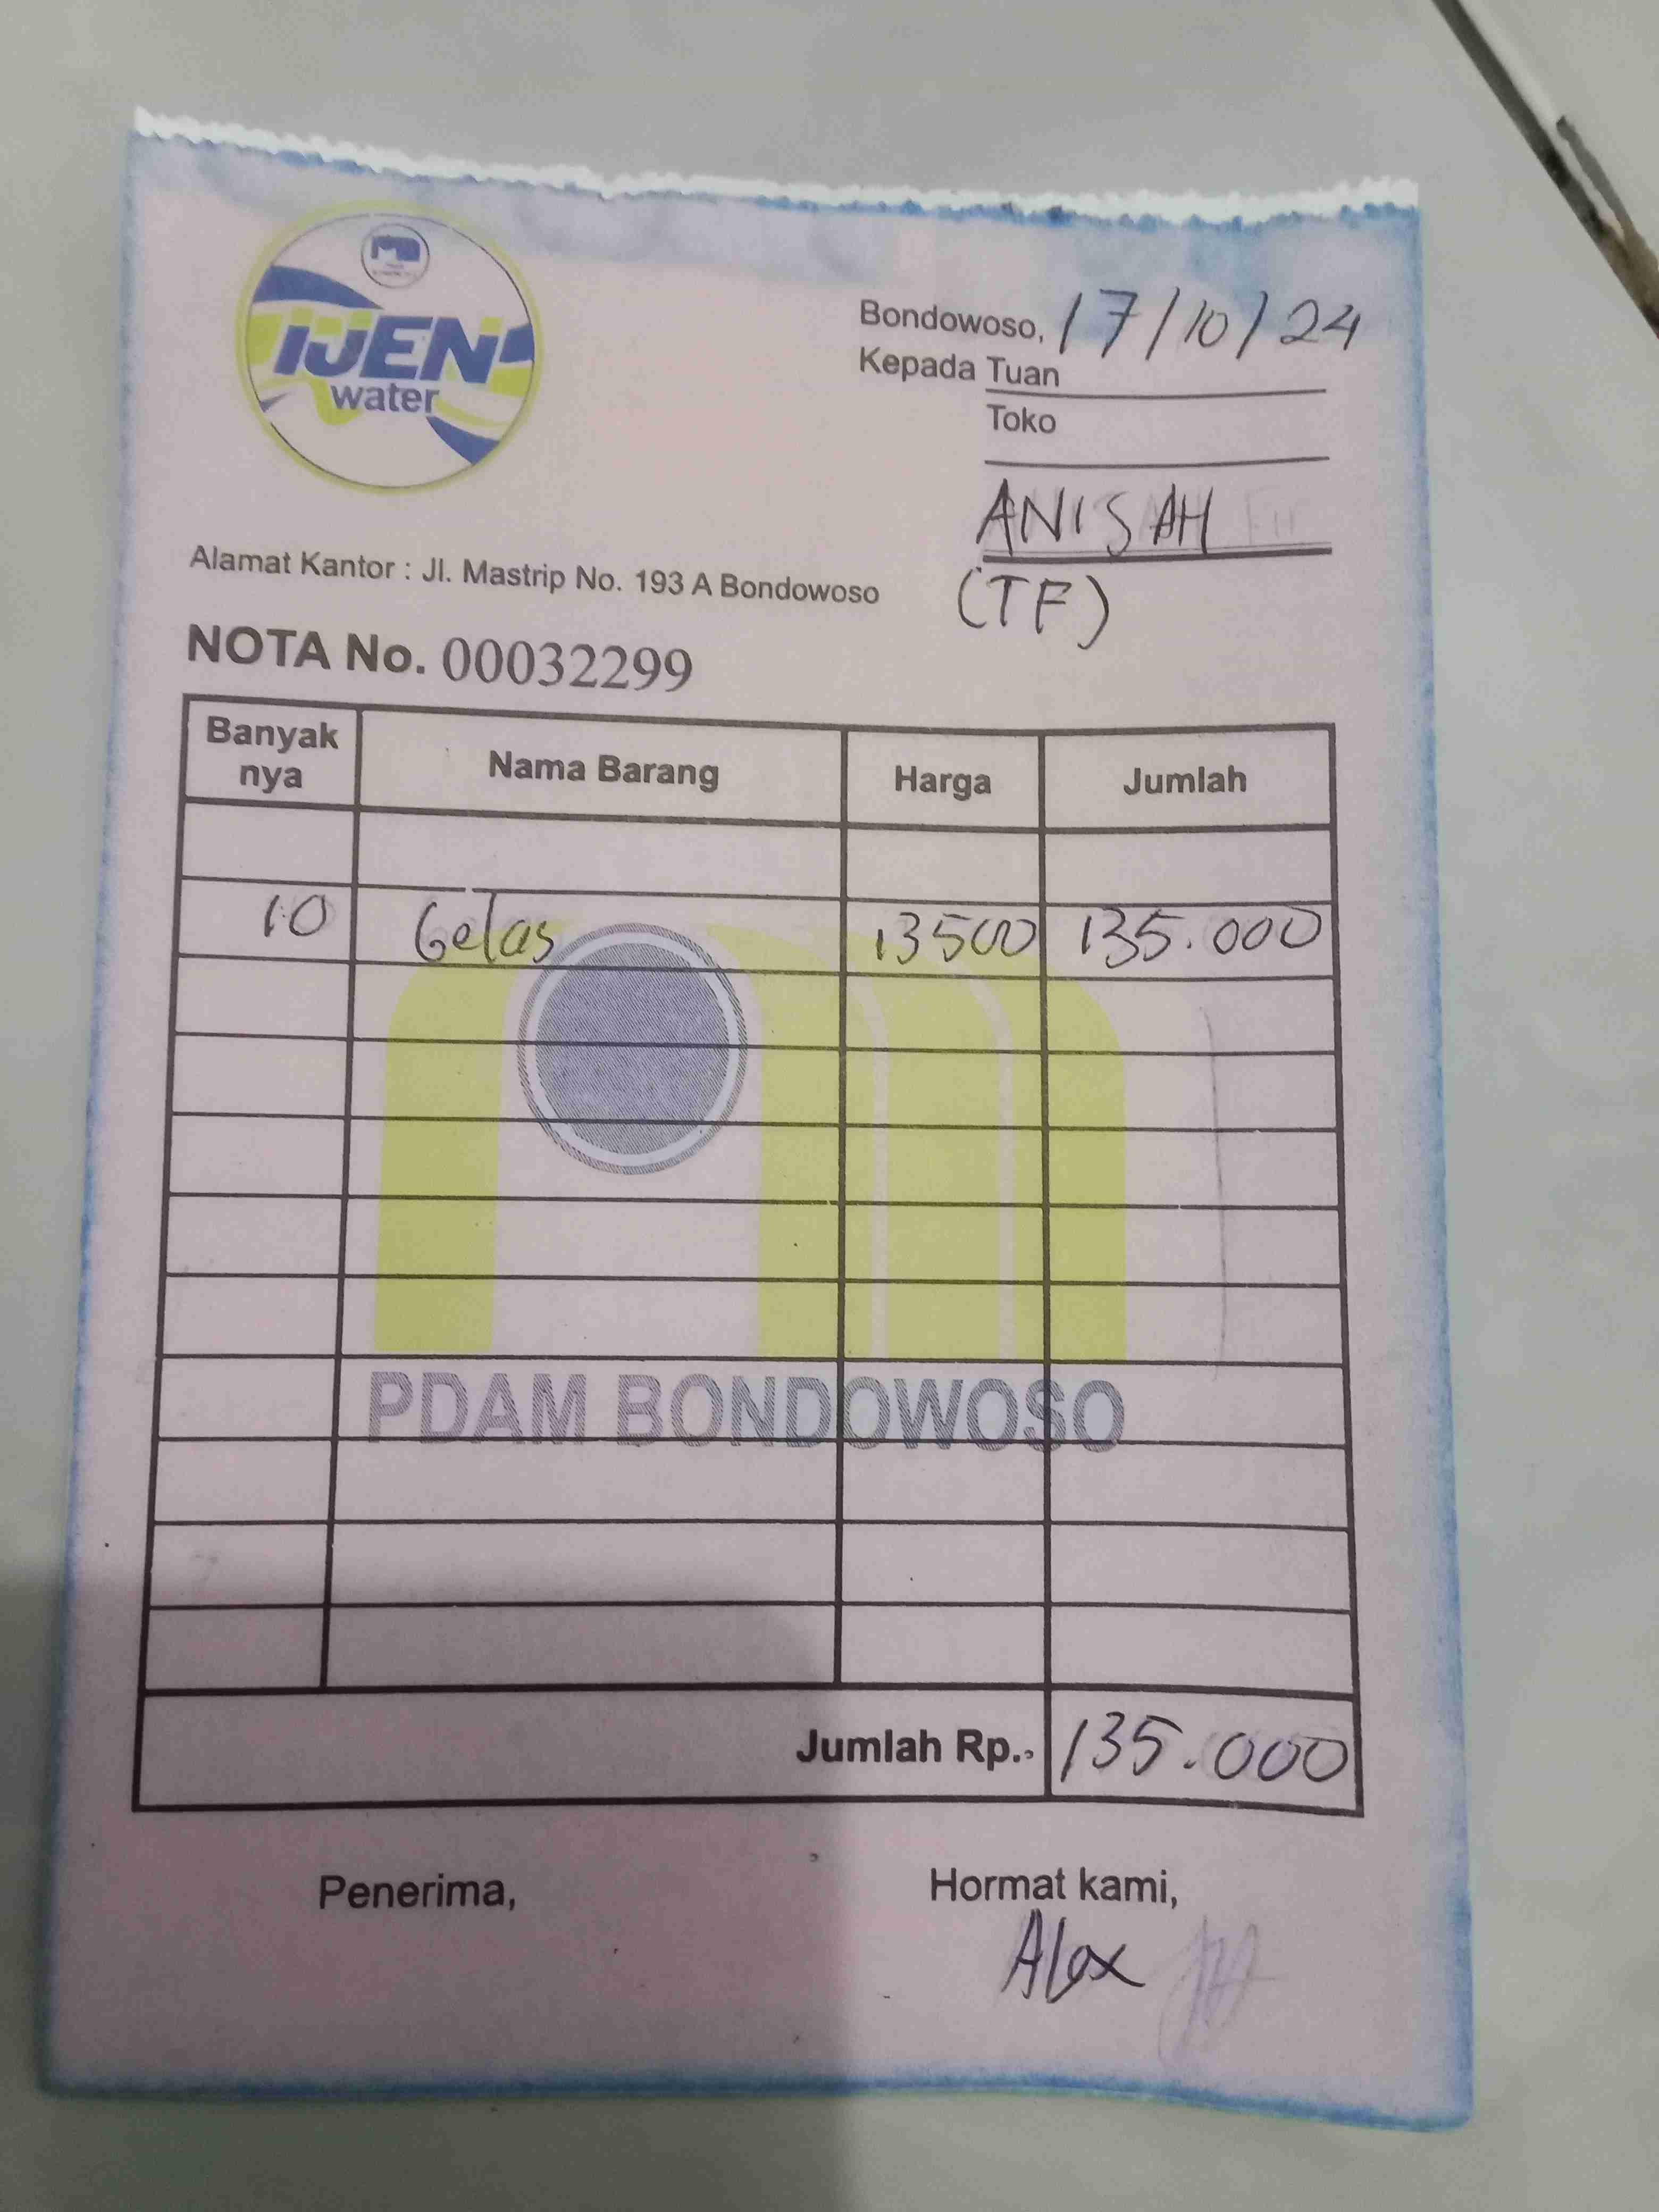 IJEN
water
Bondowoso, 17/10/24
Kepada Tuan
Toko
ANISAH
(TF)
Alamat Kantor : Jl. Mastrip No. 193 A Bondowoso
NOTA No. 00032299
Banyak nya Nama Barang Harga Jumlah
10 Gelas 13500 135.000
PDAM BONDOWOSO
Jumlah Rp., 135.000
Penerima, Hormat kami,
Alex